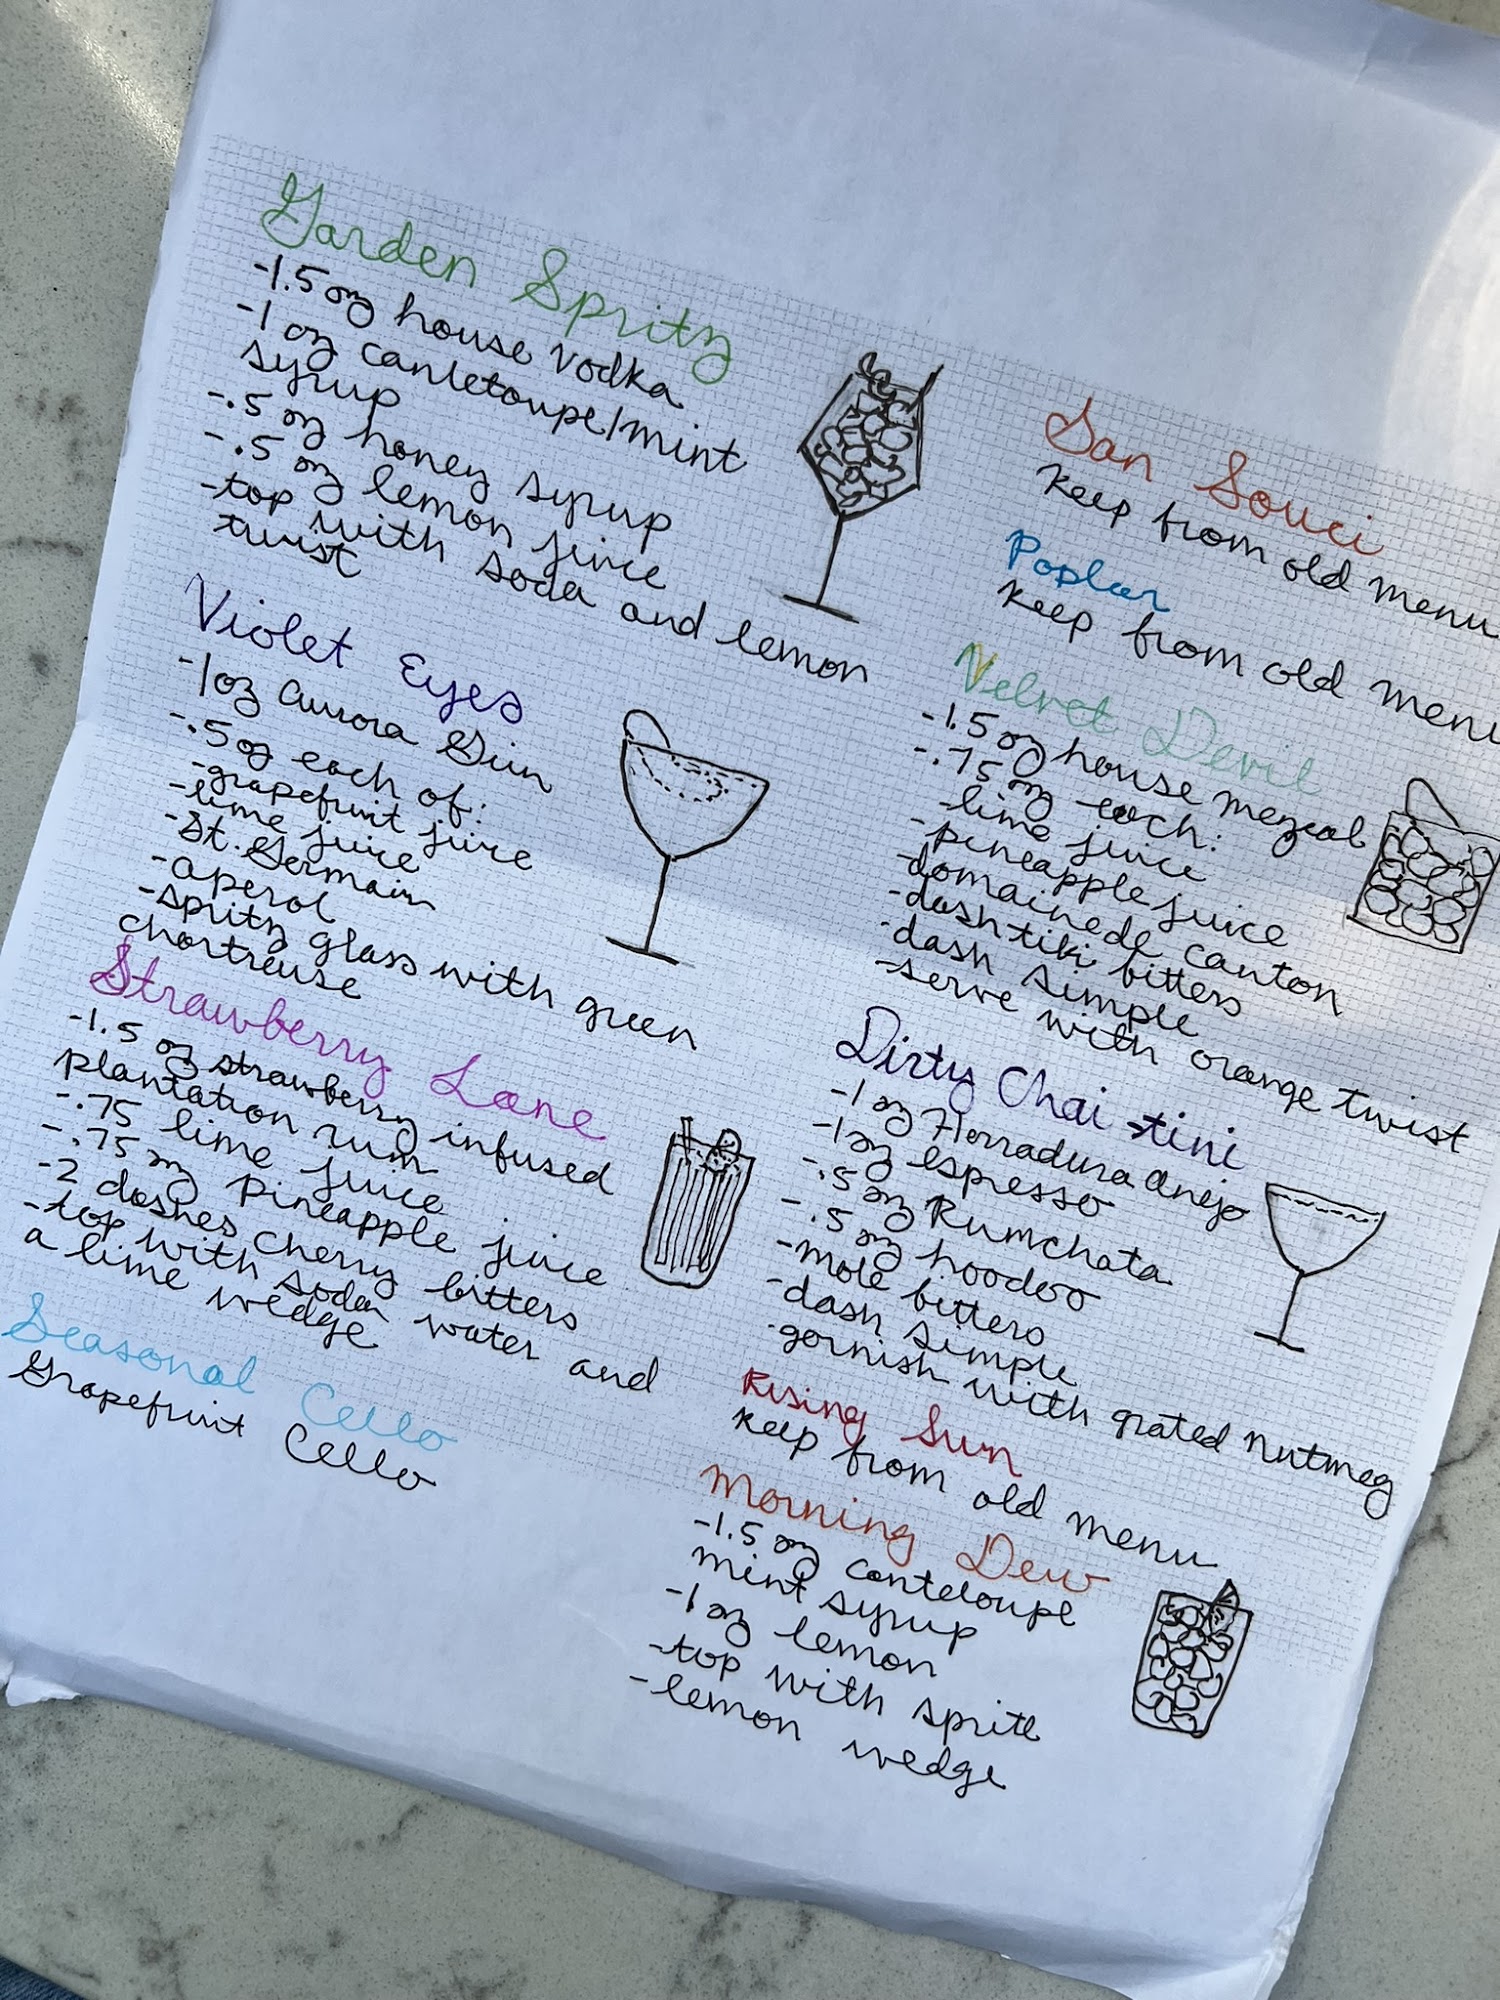 Garden Spritz
-1.5 oz house vodka
-1 oz canletoupe/mint
syrup
-.5 oz honey syrup
-.5 oz lemon juice
-top with soda and lemon
twist
Violet Eyes
-1oz aurora Gin
-.5 oz each of:
-grapefruit juice
-lime juice
-St. Germain
-aperol
-spritz glass with green
chartreuse
Strawberry Lane
-1.5 oz strawberry infused
plantation rum
-.75 lime juice
-.75 oz pineapple juice
-2 dashes cherry bitters
-top with soda water and
a lime wedge
Seasonal Cello
Grapefruit Cello
San Souci
keep from old menu
Poplar
keep from old menu
Velvet Devil
-1.5 oz house mezcal
-.75 oz each:
-lime juice
-pineapple juice
-domainede canton
-dash tiki bitters
-dash simple
-serve with orange twist
Dirty Chai-tini
-1 oz Herradura anejo
-1oz espresso
-.5 oz Rumchata
-.5 oz hoodoo
-mole bitters
-dash simple
-garnish with grated nutmeg
Rising Sun
keep from old menu
Morning Dew
-1.5 oz canteloupe
mint syrup
-1 oz lemon
-top with sprite
-lemon wedge